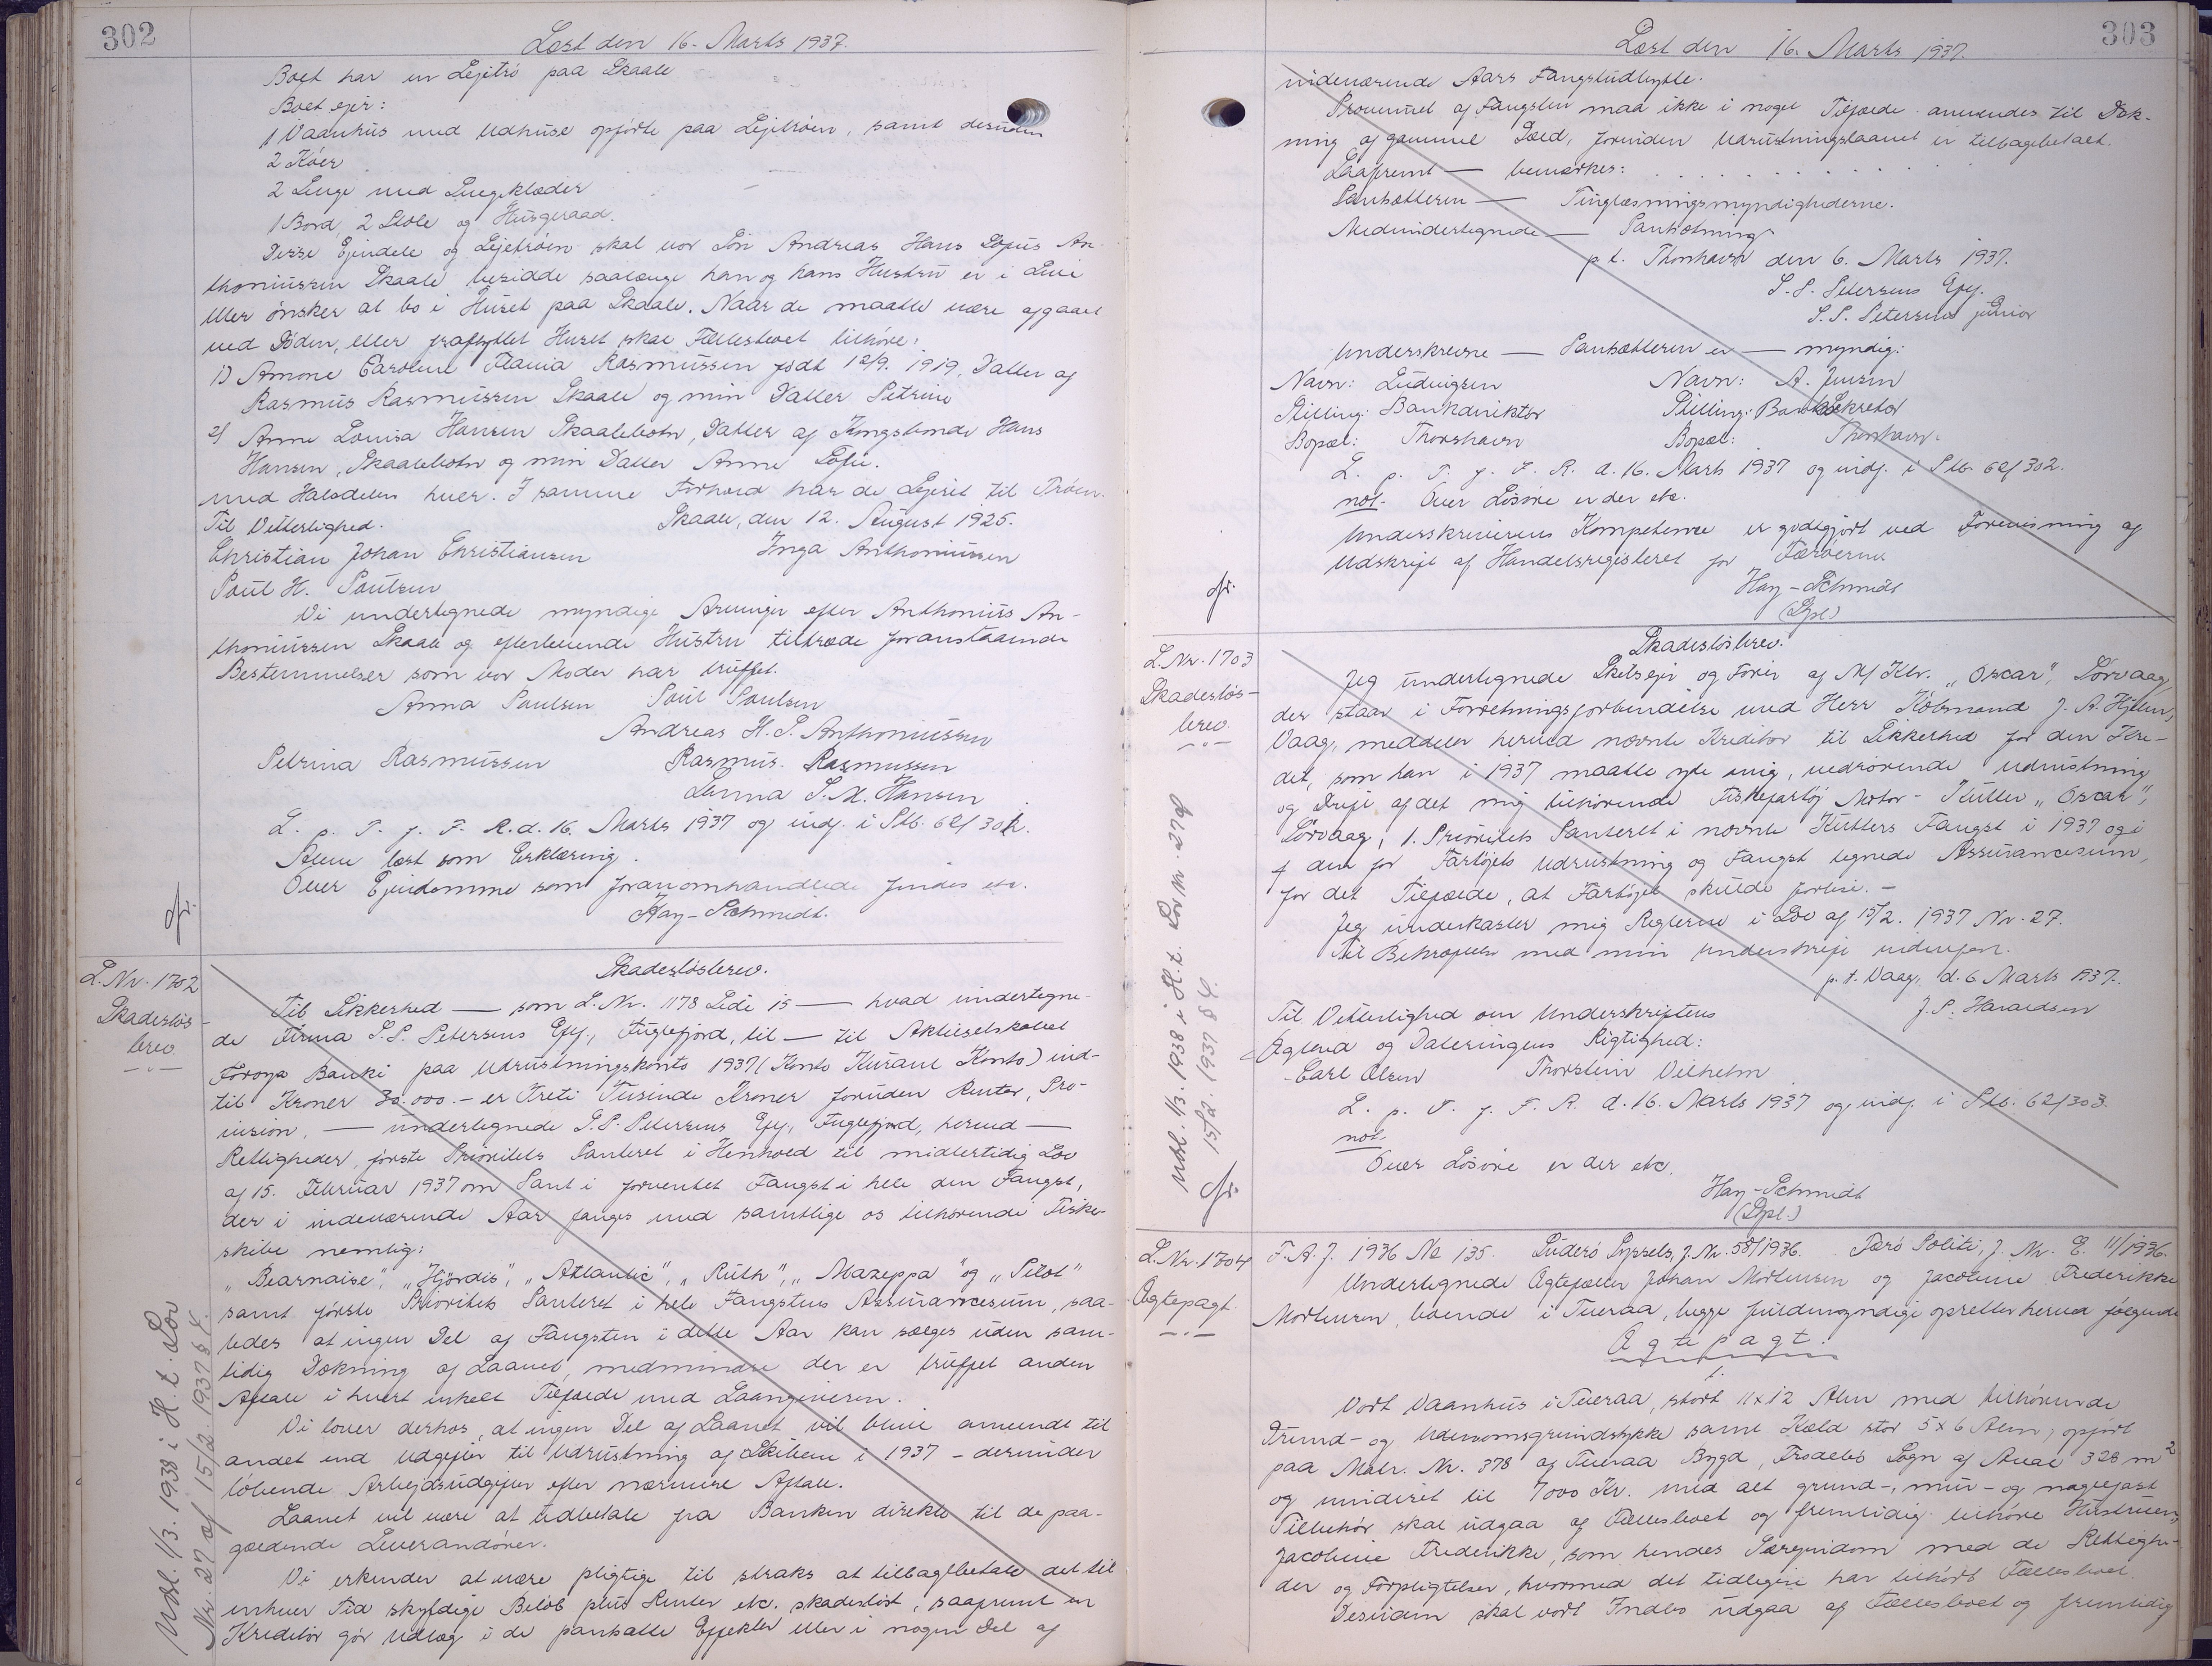 302
Læst den 16. Marts 1937.
Boet har en Lejetrö paa Skaale
Boet ejer:
1 Vaanhus med Udhuse opförte paa Lejetröen, samt desuden
2 Köer
2 Senge med Sengeklæder
1 Bord, 2 Stole og Husgeraad.
Disse Ejendele og Lejetröen skal vor Sön Andreas Hans Sofus An-
thoniussen Skaale besidde saalænge han og hans Hustru er i Live
eller önsker at bo i Huset paa Skaale. Naar de maatte være afgaaet
ved Döden, eller fraflyttet Huset skal Fællesboet tilhöre:
1) Amone Caroline Flavia Rasmussen födt 12/9. 1919, Datter af
Rasmus Rasmussen Skaale og min Datter Petrine
2) Anne Louisa Hansen Skaalebotn, Datter af Kongsbonde Hans
Hansen, Skaalebotn og min Datter Anne Sofie.
med Halvdelen hver. I samme Forhold har de Lejeret til Tröen.
Til Vitterlighed. Skaale, den 12. August 1925.
Christian Johan Christiansen Inga Anthoniussen
Poul H. Poulsen
Vi undertegnede myndige Arvinger efter Anthonius An-
thoniussen Skaale og efterlevende Hustru tiltræde foranstaaende
Bestemmelser som vor Moder har truffet.
Anna Paulsen Poul Poulsen
Andreas H. S. Anthoniussen
Petrina Rasmussen Rasmus Rasmussen
Sanna S. M. Hansen
L. p. T. f. F. R. d. 16. Marts 1937 og indf. i Plb. 62/302.
Alene læst som Erklæring.
Over Ejendomme som foranomhandlede findes etc.
Hay-Schmidt.
L. Nr. 1702
Skadeslös-
brev.
Skadeslösbrev.
Til Sikkerhed — som L. Nr. 1178 Side 15 — hvad undertegne-
de Firma S. P. Petersens Eftf., Fuglefjord, til — til Aktieselskabet
Föroya Banki paa Udrustningskonto 1937 (Konto Kurant Konto) ind-
til Kroner 30.000.- er Treti Tusinde Kroner foruden Renter, Pro-
vision, — undertegnede S. P. Petersens Eftf., Fuglefjord, herved —
Rettigheder, förste Prioritets Panteret i Henhold til midlertidig Lov
af 15. Februar 1937 om Pant i forventet Fangst i hele den Fangst,
der i indeværende Aar fanges med samtlige os tilhörende Fiske-
skibe nemlig:
"Bearnaise", "Hjördis", "Atlantic", "Ruth", "Mazeppa" og "Pilot"
samt förste Prioritets Panteret i hele Fangstens Assurancesum, saa-
ledes at ingen Del af Fangsten i dette Aar kan sælges uden sam-
tidig Dækning af Laanet, medmindre der er truffet anden
Aftale i hvert enkelt Tilfælde med Laangiveren.
Vi lover derhos, at ingen Del af Laanet vil blive anvendt til
andet end Udgifter til Udrustning af Skibene i 1937 - derunder
löbende Arbejdsudgifter efter nærmere Aftale.
Laanet vil være at udbetale fra Banken direkte til de paa-
gældende Leverandörer.
Vi erkender at være pligtige til straks at tilbagebetale det til
enhver Tid skyldige Belöb plus Renter etc. skadeslöst, saafremt en
Kreditor gör Udlæg i de pantsatte Effekter eller i nogen Del af
Udsl. 1/3. 1938 i H. t. Lov
Nr. 27 af 15/2. 1937 § 8.
303
Læst den 16. Marts 1937.
indeværende Aars Fangstudbytte.
Provenuet af Fangsten maa ikke i noget Tilfælde anvendes til Dæk-
ning af gammel Gæld, forinden Udrustningslaanet er tilbagebetalt.
Saafremt — bemærkes: . . . . . . . . .
Pantsætteren — Tinglæsningsmyndighederne.
Medundertegnede — Pantsætning
p. t. Thorshavn den 6. Marts 1937.
S. P. Petersens Eftf.
S. P. Petersen junior
Underskrevne — Pantsætteren er — myndig:
Navn: Ludvigsen Navn: A. Jensen
Stilling: Bankdirektör Stilling: Banksekretær
Bopæl: Thorshavn Bopæl: Thorshavn.
L. p. T. f. F. R. d. 16. Marts 1937 og indf. i Plb. 62/302.
not. Over Lösöre er der etc.
Underskriverens Kompetence er godtgjort ved Forevisning af
Udskrift af Handelsregisteret for Færöerne
Hay-Schmidt
(Gpl.)
L. Nr. 1703
Skadeslös-
brev.
Skadeslösbrev.
Jeg undertegnede Skibsejer og Förer af M/Ktr. "Oscar", Sörvaag,
der staar i Forretningsforbindelse med Herr Köbmand J. A. Hjelm,
Vaag, meddeler herved nævnte Kreditor til Sikkerhed for den Kre-
dit, som han i 1937 maatte yde mig, vedrörende Udrustning
og Drift af det mig tilhörende Fiskefartöj Motor-Kutter "Oscar",
Sörvaag, 1. Prioritets Panteret i nævnte Kutters Fangst i 1937 og i
f den for Fartöjets Udrustning og Fangst tegnede Assurancesum,
for det Tilfælde, at Fartöjet skulde forlise. -
Jeg underkaster mig Reglerne i Lov af 15/2. 1937 Nr. 27.
Til Bekræftelse med min Underskrift vidnefast.
p. t. Vaag, d. 6 Marts 1937.
J. P. Haraldsen
Til Vitterlighed om Underskriftens
Ægthed og Dateringens Rigtighed:
Carl Olsen Thorstein Vilhelm
L. p. T. f. F. R. d. 16. Marts 1937 og indf. i Plb. 62/303.
not.
Over Lösöre er der etc.
Hay-Schmidt
(Gpl.)
Udsl. 1/3. 1938 i H. t. Lov Nr. 27 af
15/2. 1937 § 8.
L. Nr. 1704
Ægtepagt.
F. A. J. 1936 No 135. Suderö Syssels, J. Nr. 58/1936. Færö Politi, J. Nr. E. 11/1936.
Undertegnede Ægtefæller Johan Mortensen og Jacobine Frederikke
Mortensen, boende i Tveraa, begge fuldmyndige opretter herved fölgende
Ægtepagt:
1.
Vort Vaanhus i Tveraa, stort 11 x 12 Alen med tilhörende
Grund- og Udenomsgrundstykke samt Kæld stor 5 x 6 Alen, opfört
paa Matr. Nr. 378 af Tveraa Bygd, Frodebö Sogn af Areal 328 m²
og vurderet til 7000 Kr. med alt grund-, mur- og naglefast
Tilbehör skal udgaa af Fællesboet og fremtidig tilhöre Hustruen,
Jacobine Frederikke, som hendes Særejendom med de Rettighe-
der og Forpligtelser, hvormed det tidligere har tilhört Fællesboet.
Desuden skal vort Indbo udgaa af Fællesboet og fremtidig